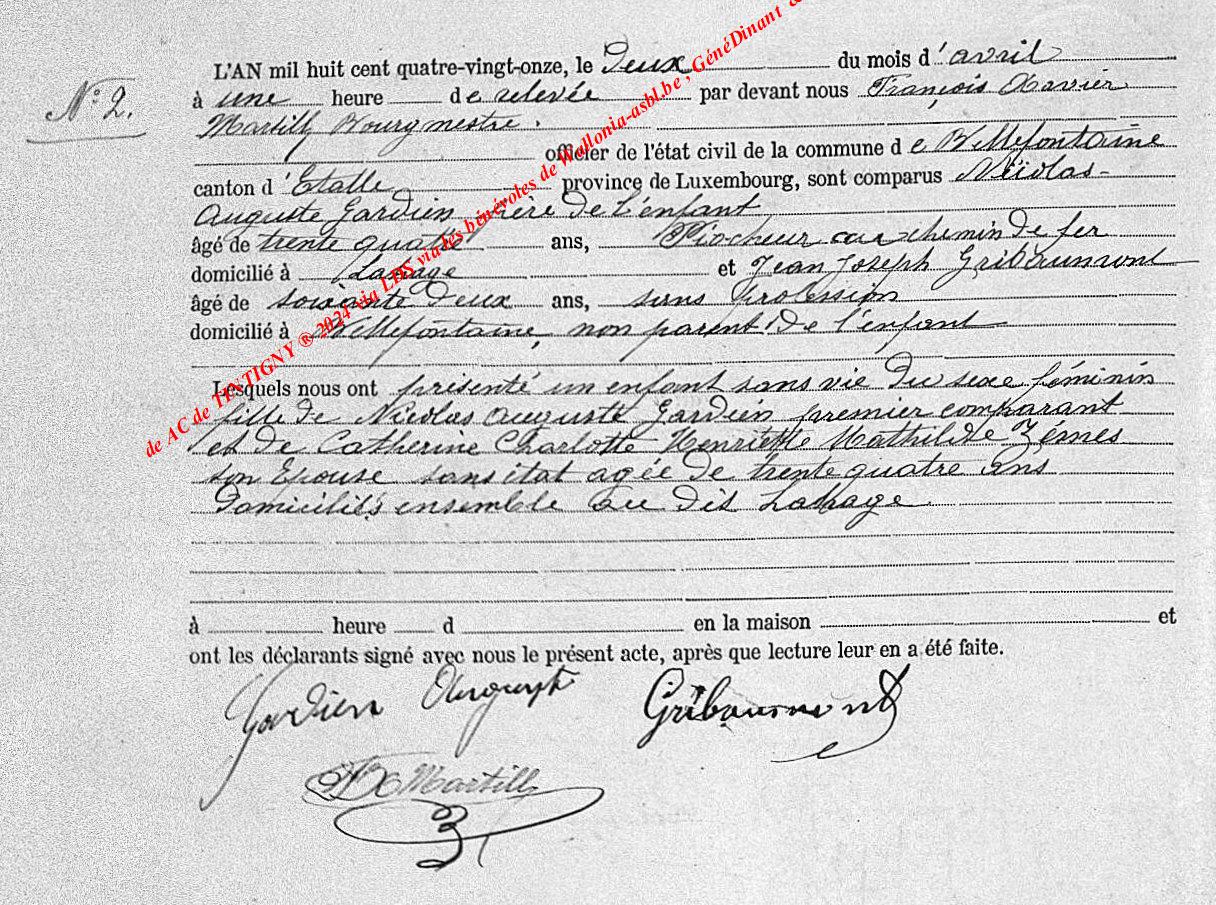 L'AN mil huit cent quatre-vingt-onze, le Deux du mois d'avril
N° 2.
à une heure de relevée par devant nous François Xavier
Martilly Bourgmestre.
officier de l'état civil de la commune de Bellefontaine
canton d'Etalle province de Luxembourg, sont comparus Nicolas-
Auguste Gardien père de l'enfant
âgé de trente quatre ans, Piocheur au chemin de fer
domicilié à Lahage et Jean Joseph Gribaumont
âgé de soixante Deux ans, sans profession
domicilié à Bellefontaine, non parent De l'enfant
Lesquels nous ont présenté un enfant sans vie Du sexe féminin
fille de Nicolas Auguste Gardien premier comparant
et de Catherine Charlotte Henriette Mathilde
son Epouse sans état agée de trente quatre ans
Domiciliés ensemble au dit Lahage.
à heure d en la maison et
ont les déclarants signé avec nous le présent acte, après que lecture leur en a été faite.
Gardien August
Gribaumont
Martilly
de AC de TINTIGNY ® 2024 via LDS via les bénévoles de Wallonia-asbl.be ; GénéDinant &